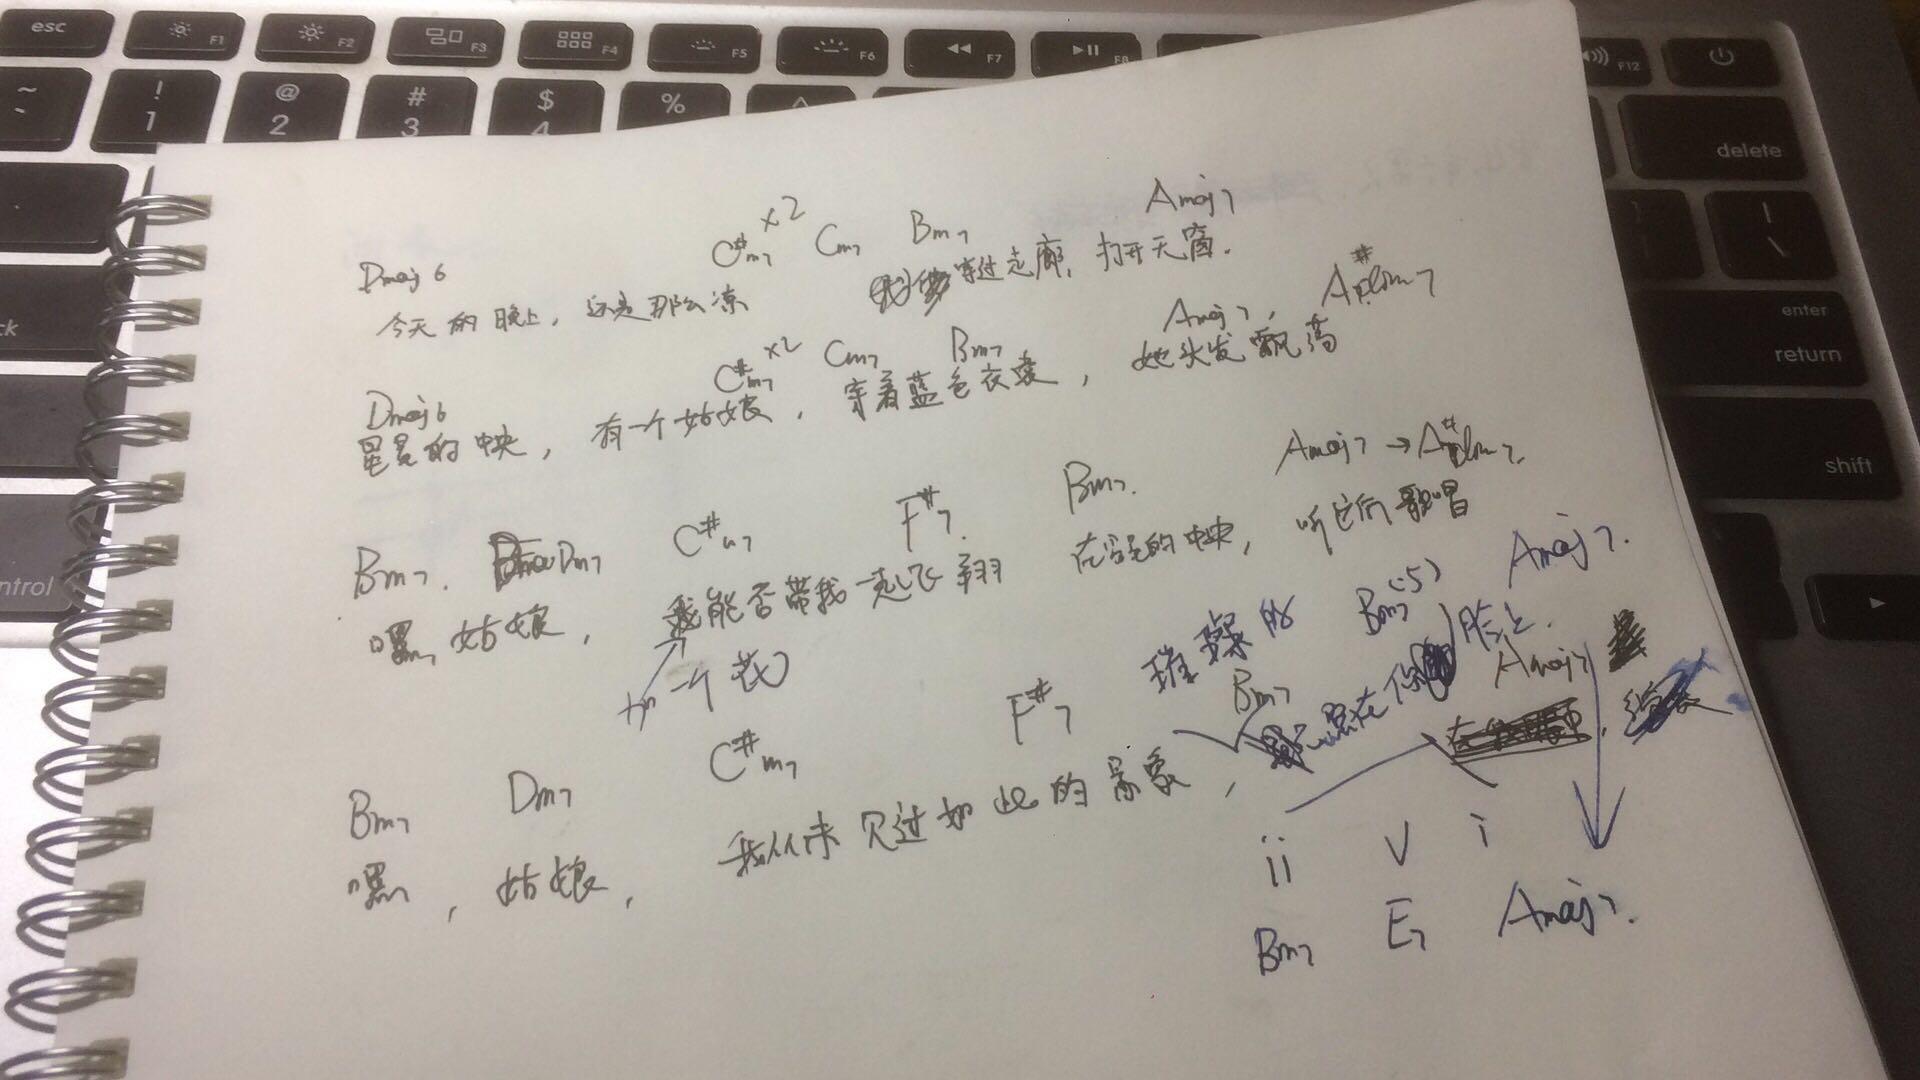 esc F1 F2 F3 F4 F5 F6 F7 F8 F12
~ ! @ # $ %
` 1 2 3 4
delete
enter
return
shift
control
Dmaj6 C#m7 x2 Cm7 Bm7 Amaj7
今天的晚上，还是那么凉 穿过走廊，打开天窗.
Dmaj6 C#m7 x2 Cm7 Bm7 Amaj7,
星星的中央，有一个姑娘，穿着蓝色衣裳，她头发飘荡
Bm7. Dm7 C#m7 F#7. Bm7. Amaj7 →
嘿，姑娘，我能否带我一起飞翔 在星星的中央，听它们歌唱
加一个花
璀璨的 Bm7(-5) Amaj7.
在你 脸上.
Bm7 Dm7 C#m7 F#7 Bm7 Amaj7
嘿，姑娘，我从未见过如此的景象，
ii V i
Bm7 E7 Amaj7.